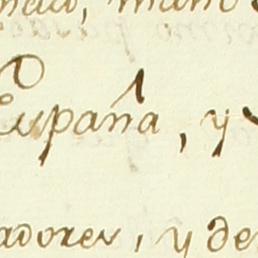 España, y
adores, y de